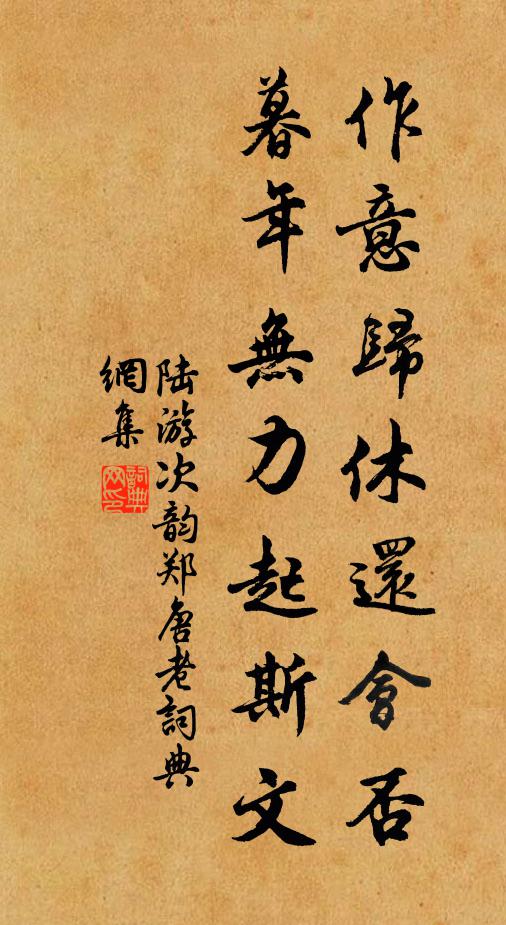 作意歸休還會否
暮年無力起斯文
陆游次韵郑唐老詞典
網集
詞典
网印